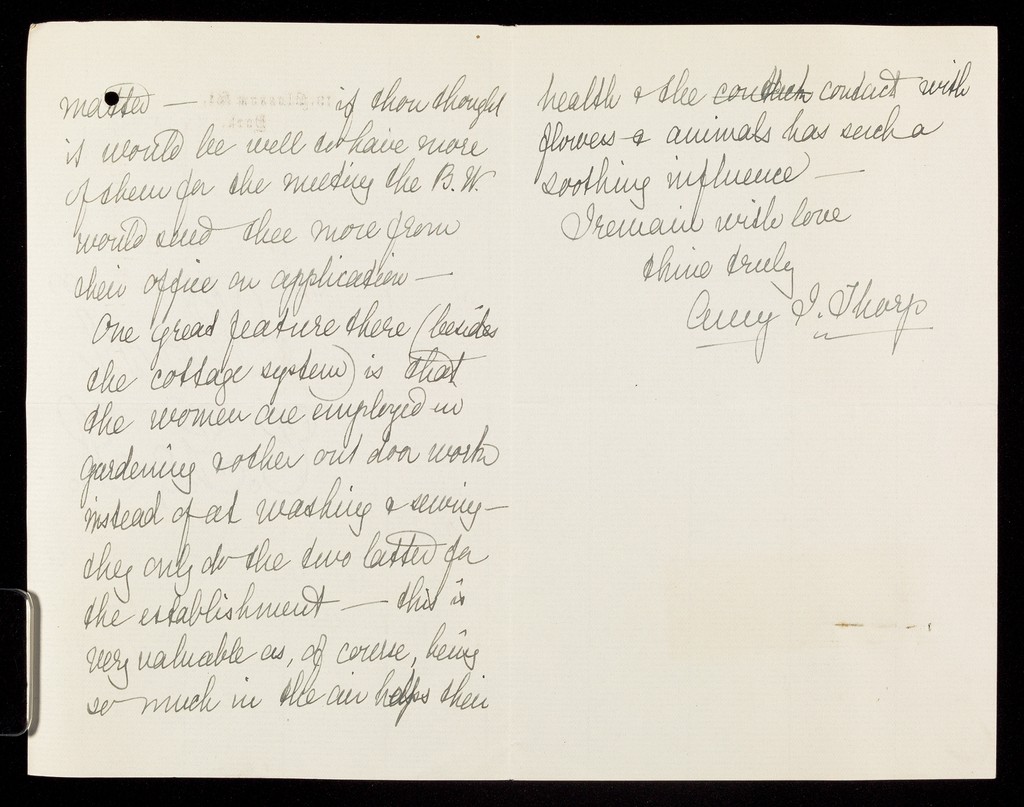 matter — if thou thought
it would be well to have more
of them for the meeting the B.W.
would send thee more from
their office on application —
One great feature there (besides
the cottage system) is that
the women are employed in
gardening & other out door work
instead of at washing & sewing —
they only do the two latter for
the establishment — this is
very valuable as, of course, being
so much in the air helps their
health & the conduct with
flowers & animals has such a
soothing influence —
I remain with love
thine truly
Amy I. Thorp